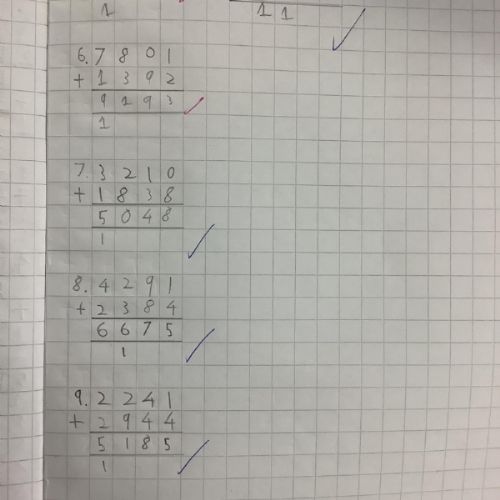 1
1 1
6. 7 8 0 1
+ 1 3 9 2
9 1 9 3
1
7. 3 2 1 0
+ 1 8 3 8
5 0 4 8
1
8. 4 2 9 1
+ 2 3 8 4
6 6 7 5
1
9. 2 2 4 1
+ 2 9 4 4
5 1 8 5
1